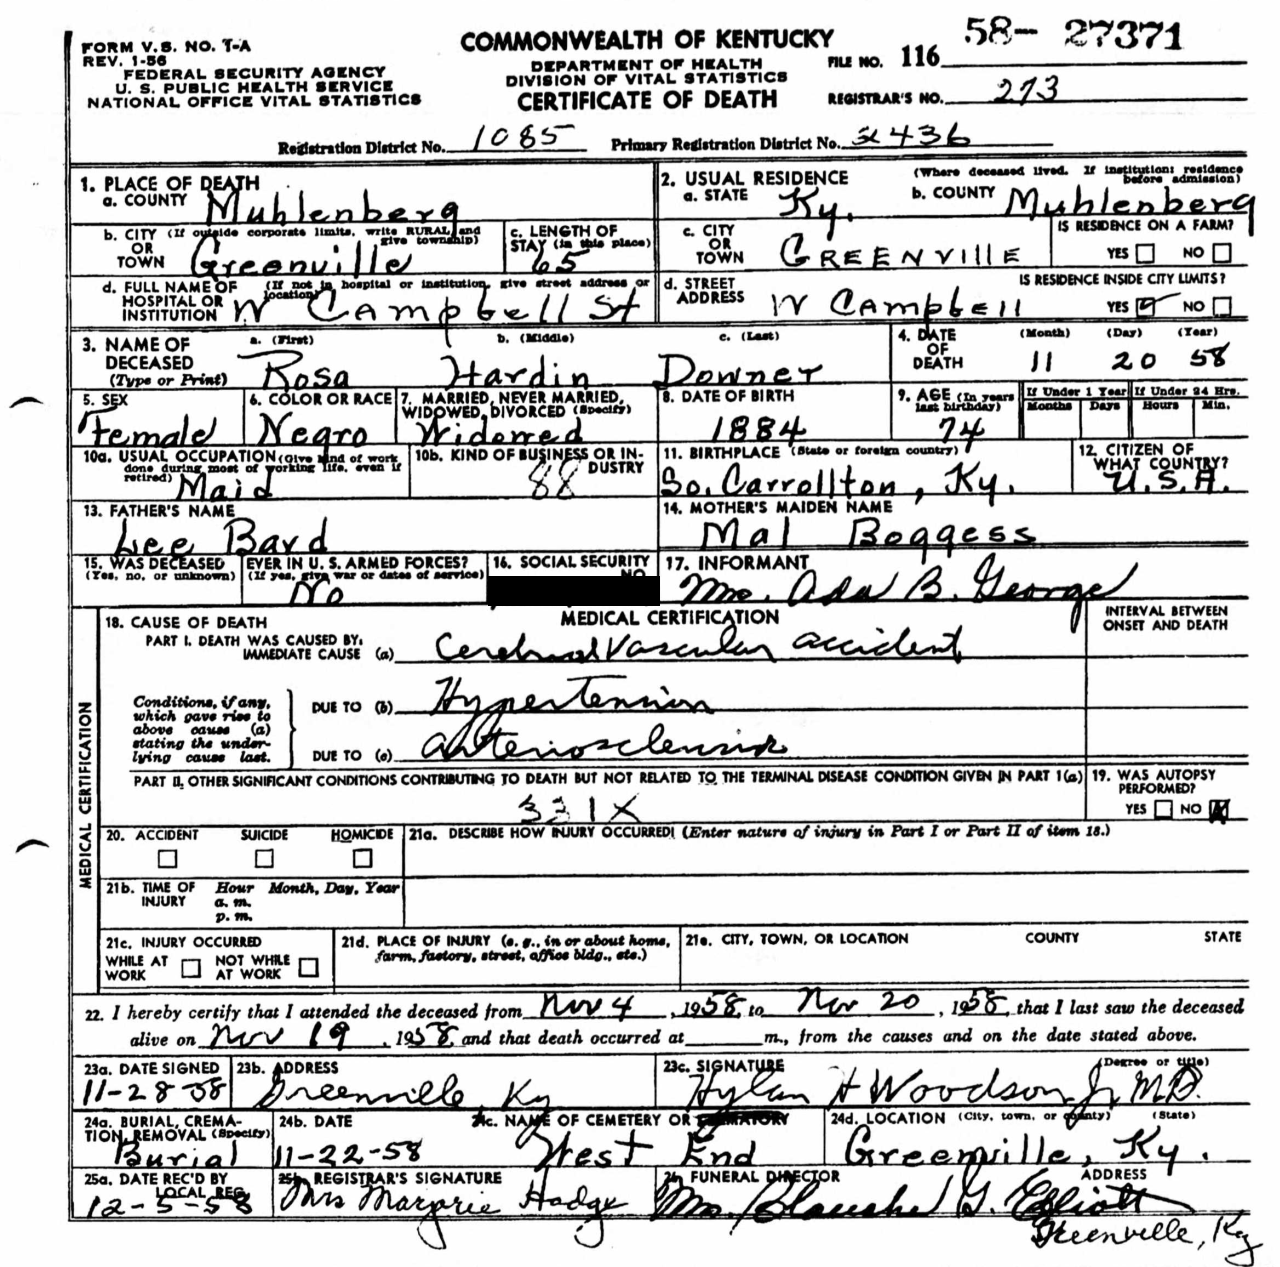 FORM V. S. NO. 1-A
REV. 1-56
FEDERAL SECURITY AGENCY
U. S. PUBLIC HEALTH SERVICE
NATIONAL OFFICE VITAL STATISTICS
COMMONWEALTH OF KENTUCKY
DEPARTMENT OF HEALTH
DIVISION OF VITAL STATISTICS
CERTIFICATE OF DEATH
FILE NO. 116 58- 27371
REGISTRAR'S NO. 273
Registration District No. 1085 Primary Registration District No. 2436
1. PLACE OF DEATH
a. COUNTY Muhlenberg
2. USUAL RESIDENCE (Where deceased lived. If institution: residence before admission)
a. STATE Ky. b. COUNTY Muhlenberg
b. CITY (If outside corporate limits, write RURAL and give township)
OR
TOWN Greenville
c. LENGTH OF STAY (in this place) 65
c. CITY
OR
TOWN GREENVILLE
IS RESIDENCE ON A FARM?
YES NO
d. FULL NAME OF (If not in hospital or institution, give street address or location)
HOSPITAL OR
INSTITUTION W Campbell St
d. STREET
ADDRESS W Campbell
IS RESIDENCE INSIDE CITY LIMITS?
YES NO
3. NAME OF
DECEASED
(Type or Print)
a. (First) b. (Middle) c. (Last)
Rosa Hardin Downer
4. DATE
OF
DEATH
(Month) (Day) (Year)
11 20 58
5. SEX
Female
6. COLOR OR RACE
Negro
7. MARRIED, NEVER MARRIED,
WIDOWED, DIVORCED (Specify)
Widowed
8. DATE OF BIRTH
1884
9. AGE (In years last birthday)
74
If Under 1 Year If Under 24 Hrs.
Months Days Hours Min.
10a. USUAL OCCUPATION (Give kind of work done during most of working life, even if retired)
Maid
10b. KIND OF BUSINESS OR INDUSTRY
88
11. BIRTHPLACE (State or foreign country)
So. Carrollton, Ky.
12. CITIZEN OF
WHAT COUNTRY?
U.S.A.
13. FATHER'S NAME
Lee Bard
14. MOTHER'S MAIDEN NAME
Mal Boggess
15. WAS DECEASED EVER IN U. S. ARMED FORCES?
(Yes, no, or unknown) (If yes, give war or dates of service)
No
16. SOCIAL SECURITY
NO.
17. INFORMANT
Mrs. Ada B. George
MEDICAL CERTIFICATION
18. CAUSE OF DEATH
MEDICAL CERTIFICATION
INTERVAL BETWEEN
ONSET AND DEATH
PART I. DEATH WAS CAUSED BY:
IMMEDIATE CAUSE (a) Cerebral Vascular accident
Conditions, if any,
which gave rise to
above cause (a)
stating the under-
lying cause last.
DUE TO (b) Hypertension
DUE TO (c) arteriosclerosis
PART II, OTHER SIGNIFICANT CONDITIONS CONTRIBUTING TO DEATH BUT NOT RELATED TO THE TERMINAL DISEASE CONDITION GIVEN IN PART I(a)
331X
19. WAS AUTOPSY
PERFORMED?
YES NO
20. ACCIDENT SUICIDE HOMICIDE
21a. DESCRIBE HOW INJURY OCCURRED! (Enter nature of injury in Part I or Part II of item 18.)
21b. TIME OF
INJURY
Hour Month, Day, Year
a. m.
p. m.
21c. INJURY OCCURRED
WHILE AT
WORK
NOT WHILE
AT WORK
21d. PLACE OF INJURY (e. g., in or about home,
farm, factory, street, office bldg., etc.)
21e. CITY, TOWN, OR LOCATION COUNTY STATE
22. I hereby certify that I attended the deceased from Nov 4, 1958, to Nov 20, 1958, that I last saw the deceased
alive on Nov 19, 1958, and that death occurred at m., from the causes and on the date stated above.
23a. DATE SIGNED
11-28-58
23b. ADDRESS
Greenville, Ky
23c. SIGNATURE (Degree or title)
Hylan H Woodson Jr M.D.
24a. BURIAL, CREMA-
TION, REMOVAL (Specify)
Burial
24b. DATE
11-22-58
24c. NAME OF CEMETERY OR CREMATORY
West End
24d. LOCATION (City, town, or county) (State)
Greenville, Ky.
25a. DATE REC'D BY
LOCAL REG.
12-5-58
25b. REGISTRAR'S SIGNATURE
Mrs Marjorie Hodge
26. FUNERAL DIRECTOR ADDRESS
Mrs. Blanche G. Elliott
Greenville, Ky